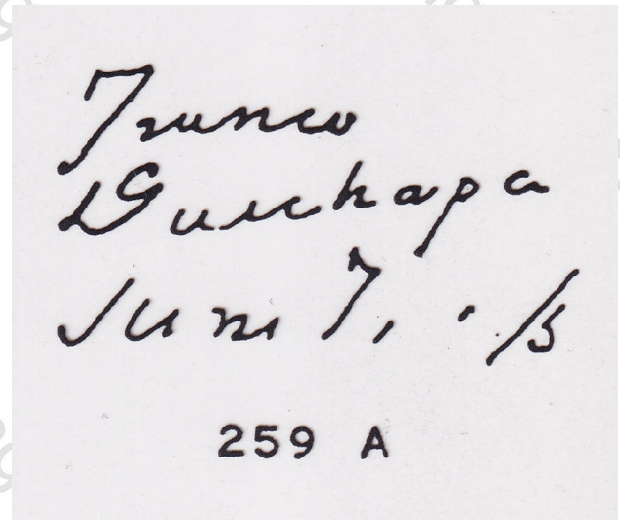 Trunco
Guachapa
June 7, '13
259 A